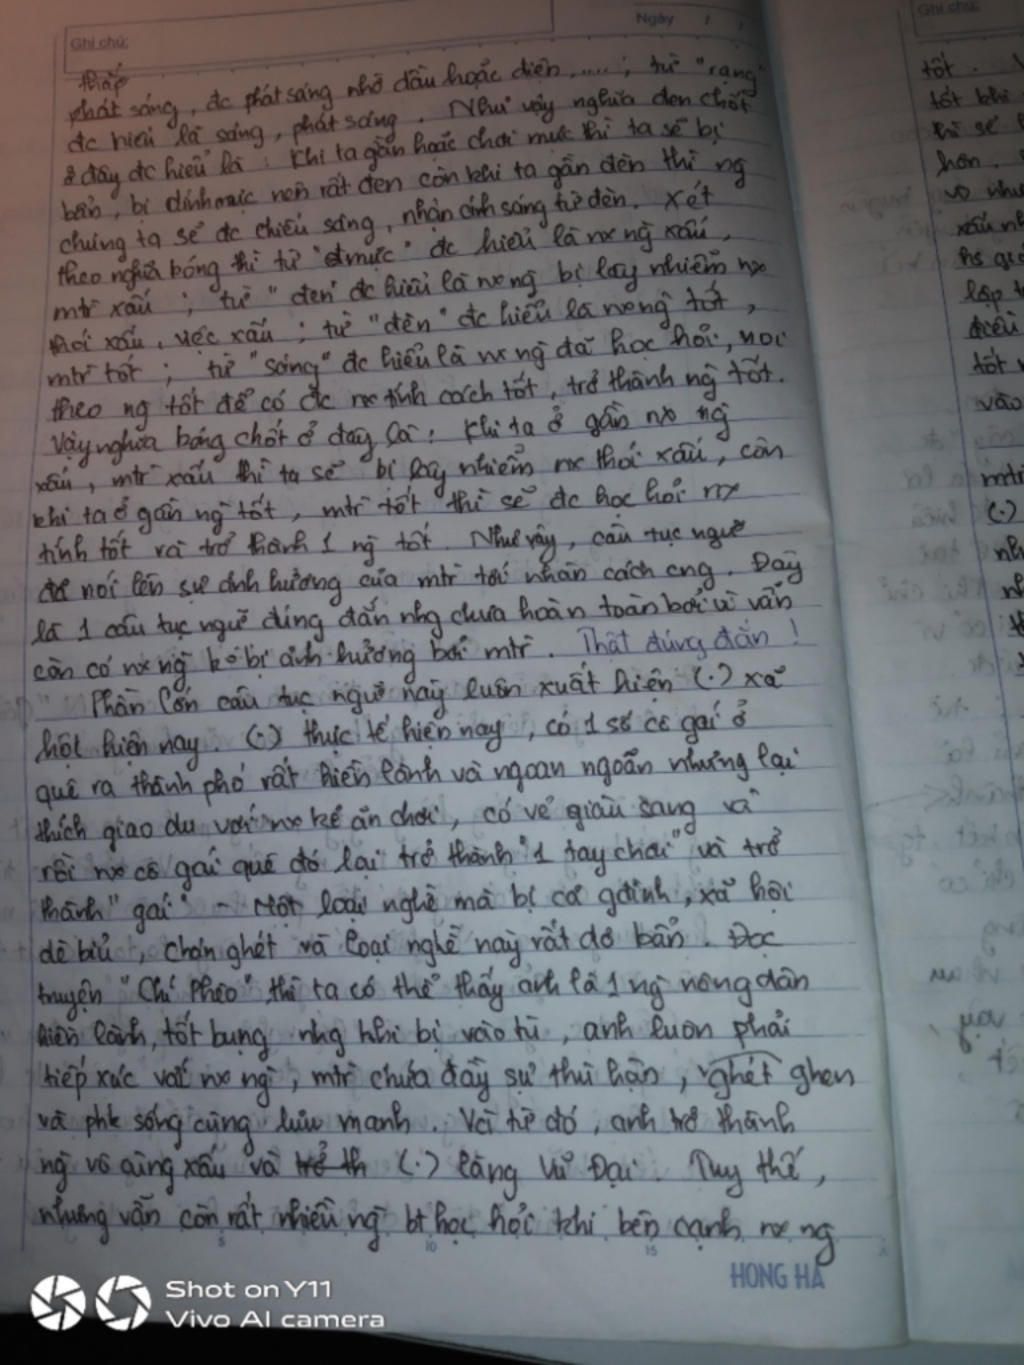 Ghi chú:
Ngày / /
thắp
phát sáng, đc phát sáng nhờ dầu hoặc điện,.....; từ "rạng"
đc hiểu là sáng, phát sáng. Như vậy nghĩa đen chốt
ở đây đc hiểu là: Khi ta gần hoặc chơi mực thì ta sẽ bị
bẩn, bị dính mực nên rất đen còn khi ta gần đèn thì ng
chúng ta sẽ đc chiếu sáng, nhận ánh sáng từ đèn. Xét
theo nghĩa bóng thì từ "mực" đc hiểu là nx ng xấu,
mtr xấu; từ "đen" đc hiểu là nx ng bị lây nhiễm nx
thói xấu, việc xấu; từ "đèn" đc hiểu là nx ng tốt,
mtr tốt; từ "sáng" đc hiểu là nx ng đã học hỏi, noi
theo ng tốt để có đc nx tính cách tốt, trở thành ng tốt.
Vậy nghĩa bóng chốt ở đây là: Khi ta ở gần nx ng
xấu, mtr xấu thì ta sẽ bị lây nhiễm nx thói xấu, còn
khi ta ở gần ng tốt, mtr tốt thì sẽ đc học hỏi nx
tính tốt và trở thành 1 ng tốt. Như vậy, câu tục ngữ
đã nói lên sự ảnh hưởng của mtr tới nhân cách cng. Đây
là 1 câu tục ngữ đúng đắn nhg chưa hoàn toàn bởi vì vẫn
còn có nx ng ko bị ảnh hưởng bởi mtr. Thật đúng đắn!
Phần lớn câu tục ngữ này luôn xuất hiện (.) xã
hội hiện nay. (.) thực tế hiện nay, có 1 số cô gái ở
quê ra thành phố rất hiền lành và ngoan ngoãn nhưng lại
thích giao du với nx kẻ ăn chơi, có vẻ giàu sang và
rồi nx cô gái quê đó lại trở thành "1 tay chơi" và trở
thành "gái" - Một loại nghề mà bị cả gđình, xã hội
dè bỉu, chán ghét và loại nghề này rất dơ bẩn. Đọc
truyện "Chí Phèo" thì ta có thể thấy anh là 1 ng nông dân
hiền lành, tốt bụng nhg khi bị vào tù, anh luôn phải
tiếp xúc với nx ng, mtr chứa đầy sự thù hận, ghét ghen
và phk sống cùng lưu manh. Và từ đó, anh trở thành
ng vô cùng xấu và trở th (.) làng Vũ Đại. Tuy thế,
nhưng vẫn còn rất nhiều ng bt học hỏi khi bên cạnh nx ng
5 10 15
HONG HA
Shot on Y11
Vivo AI camera
Ghi chú:
tốt.
tốt khi
thì sẽ
hơn.
xấu
lập
tốt
vào
(.)